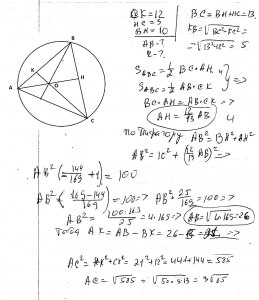 CK=12
HC=3
BH=10
AB-?
R-?
BC=BH+HC=13
KB=√BC²-KC²=
=√13²-12²=5
B
K
H
O
A
C
S_ABC=1/2 BC·AH
S_ABC=1/2 AB·CK
=>
BC·AH=AB·CK=>
AH=12/13 AB
по Пифагору AB²=BH²+AH²
AB²=10²+(12/13 AB)²=>
AB²(-144/169+1)=100
AB²(169-144/169)=100=>AB²·25/169=100=>
AB²=100·169/25=4·169=>AB=√4·169=26
Тогда AK=AB-BK=26-5=21=>
AC²=AK²+CK²=21²+12²=441+144=585
AC=√585=√5·9·13=3√65